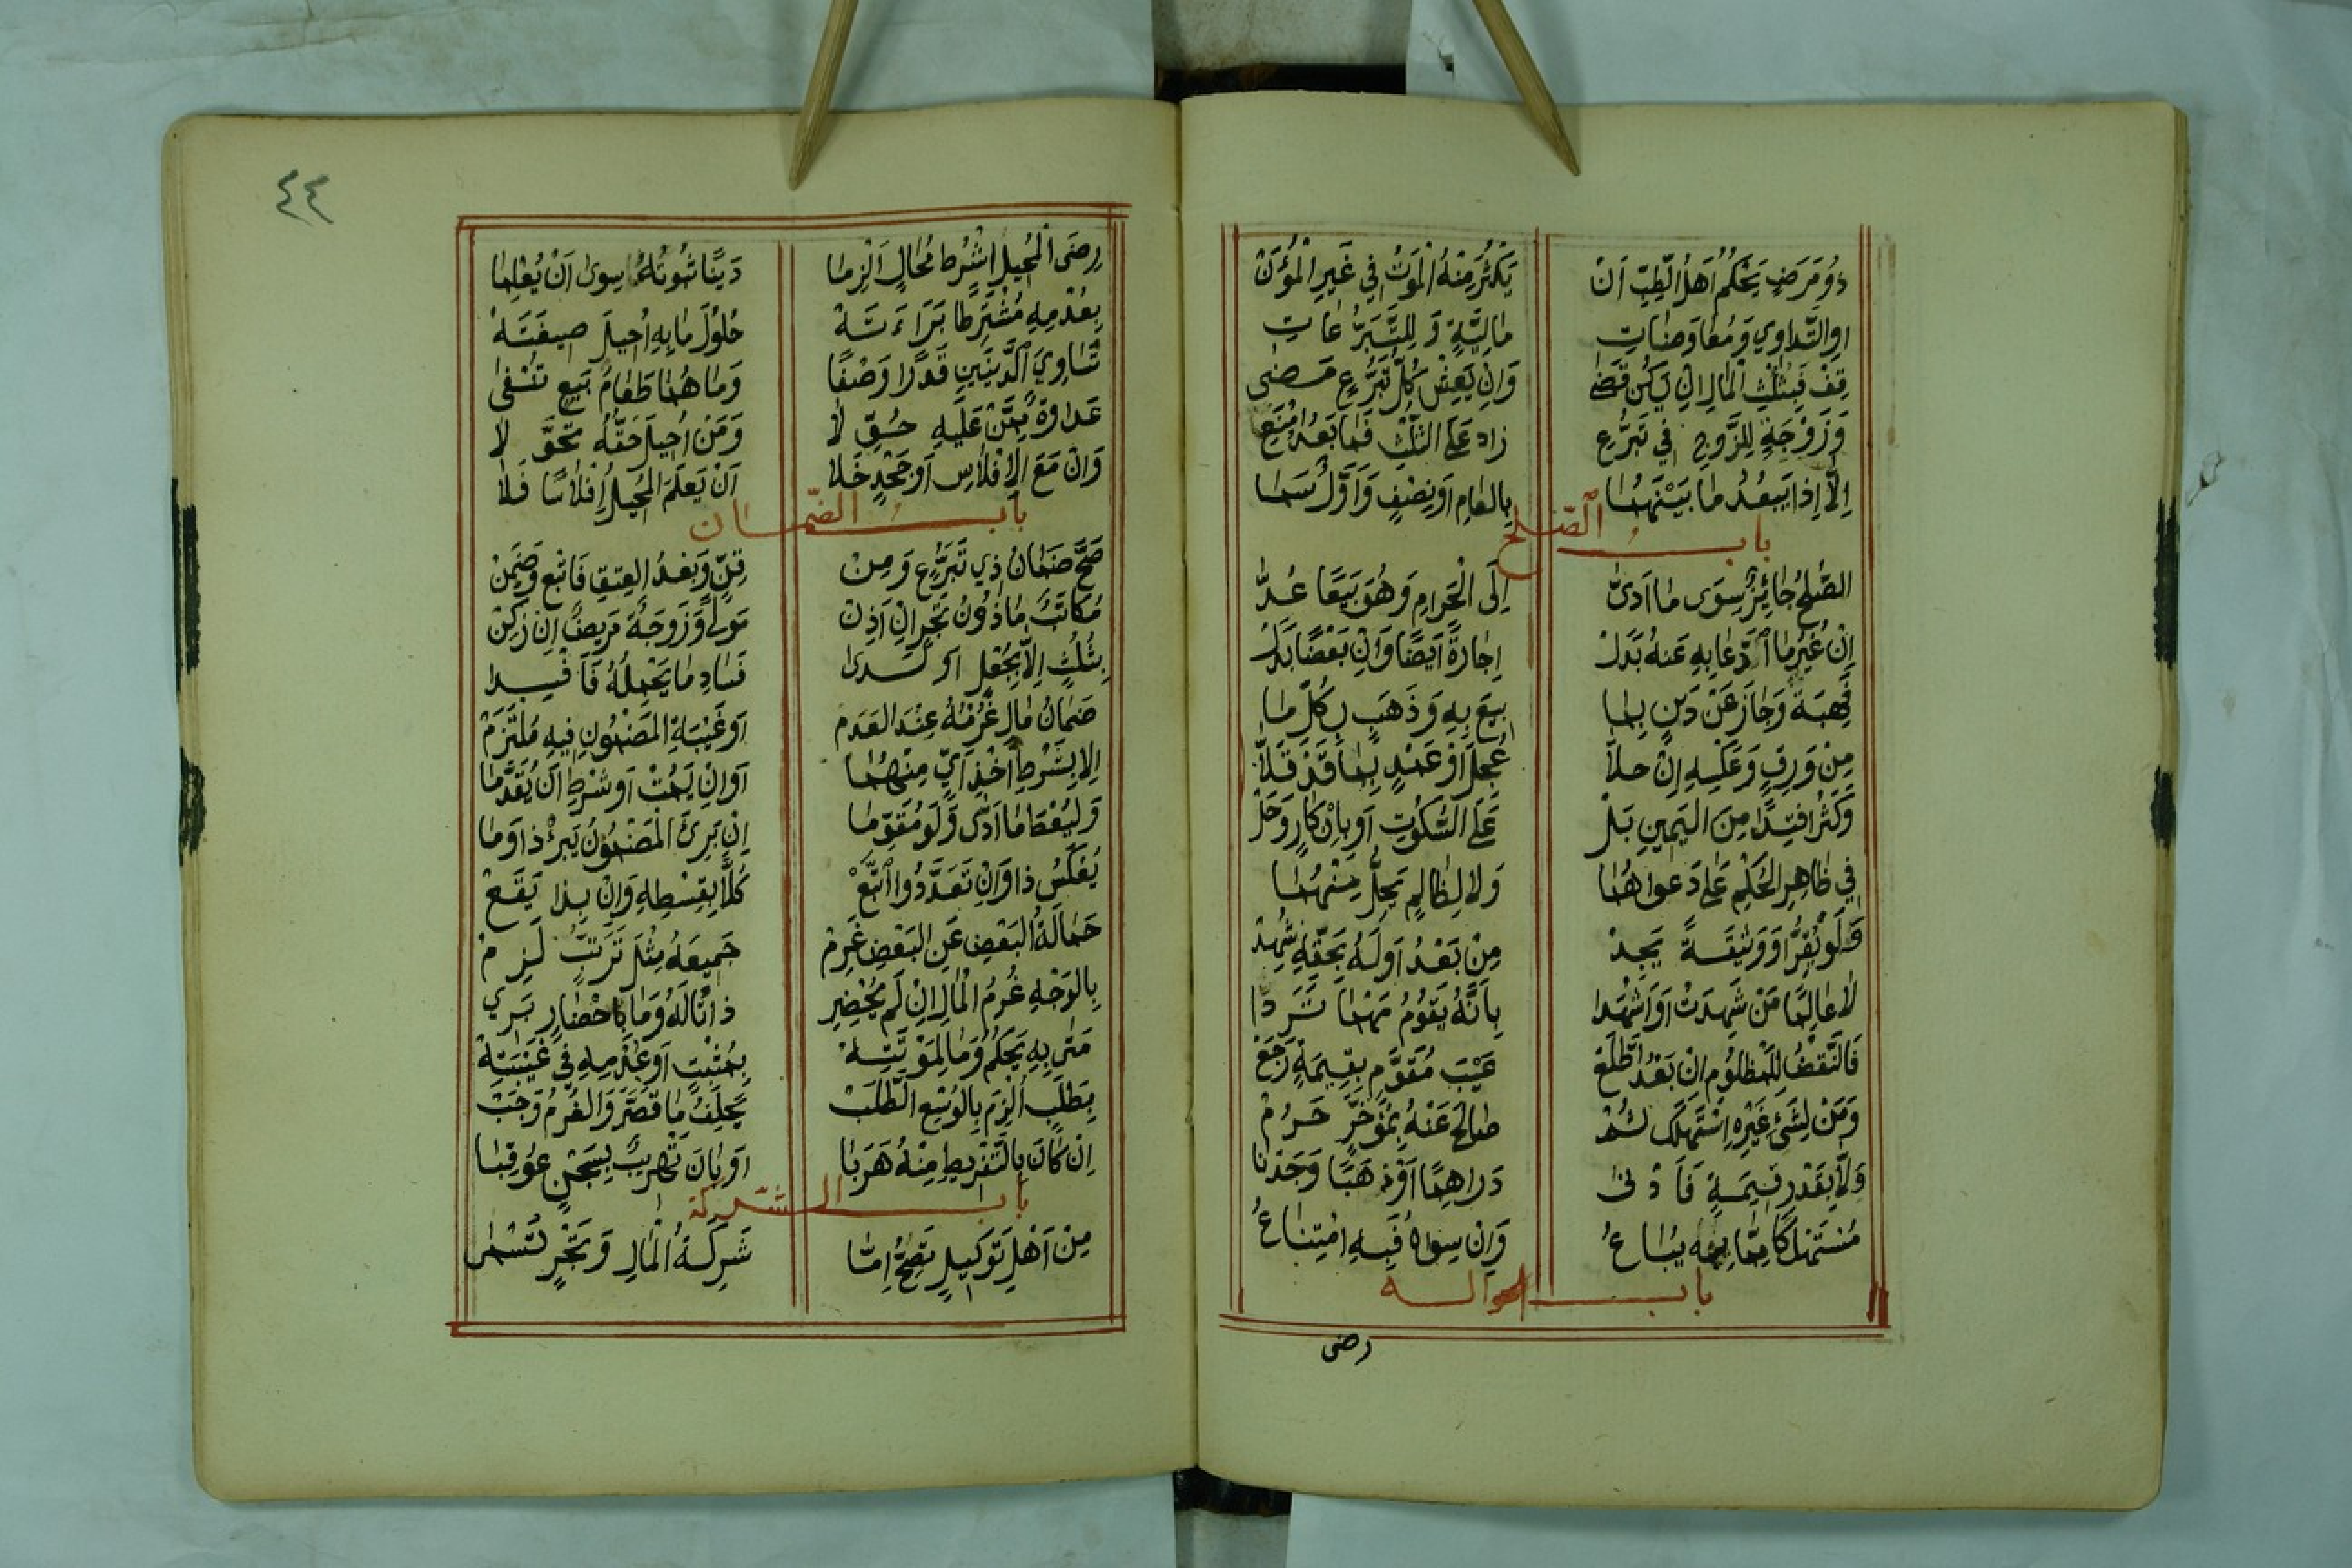 ذُو مَرَضٍ يَحْكُمُ أَهْلُ الطِّبِّ أَنْ يَكْثُرَ مِنْهُ الْمَوْتُ فِي غَيْرِ الْمُؤَنْ
اوالتَّداوي وَمُعَاوَضَاتِ مَالِيَّةٍ وَلِلتَّبَرُّعَاتِ
قِفْ فَبِثُلْثِ الْمَالِ اِنْ يَكُنْ قَضَى وَاِنْ يَعِشْ كُلُّ تَبَرُّعٍ مَضَى
وَزَوْجَةٍ لِلزَّوجِ فِي تَبَرُّعِ زاد عَلى الثُّلْثِ فَمَا بَعْدُ امْنَعِ
اِلَّا اِذَا يَبعُدُ مَا بَيْنَهُمَا بِالعَامِ اَوْ نِصْفٍ وَ
بابُ الصُّلح
الصُّلحُ جَائِزٌ سِوَى مَا اَدَّى اِلَى الْحَرامِ وَهُوَ بَيعًا عُدَّا
اِنْ غَيْرُ مَا ادَّعَا بِهِ عَنهُ بَدَلْ اِجَارَةً اَيضًا وَاِنْ بَعْضًا بَذَلْ
فَهِبَة وَجَازَ عَنْ دَينٍ بِمَا بِيعَ بِهِ وَذَهَبٍ كُلّ مَا
مِنْ وَرِقٍ وَعَكْسِهِ اِنْ حلَّا عُجِّلَ
افْتِدًا مِنَ اليَمِينِ بَلْ عَلى السُّكُوتِ اَو بِاِنْكَارٍ وَحَلْ
في ظَاهِرِ الحُكْمِ عَلى دَعواهُمَا وَلا لِظالِمٍ يَحِلُّ مِنْهُمَا
فَلَو يُقِرُّ اَوْ وَثِيقَةً يَجِدْ مِنْ بَعْدُ اَو لَهُ بِحَقِّهِ شُهِدْ
لا عَالِمًا مَنْ شَهِدَتْ اَوْ اَشْهَدا بِأَنَّهُ يَقُومُ مَهْمَا
فَالنَّقْضُ لِلْمَظلُومِ اِنْ بَعْدُ اطَّلَعْ عَيْبَ مُقَوَّمٍ بِقِيمَةٍ رَجَعْ
وَمَنْ لِشَيْءِ غَيْرِهِ اسْتَهْلَكَ ثُمْ صَالَحَ عَنْهُ بِمُؤَخَّرٍ حَرُمْ
وَلَا بِقَدْرِ قِيمَةٍ فَأَدْنَى دَراهِمًا اَوْ ذهَبًا وَجَدْنَا
مُسْتَهلَكًا مِمَّا بِهِ يُبَاعُ وَاِن سِوَاهُ فَبِهِ امْتِنَاعُ
باب الحواله
رضى
٤٤
رِضَى الْمُحِيلِ اشْرُط مُحَالٍ الْزِما دَيْنًا ثُبُوتُهُ سِوى اَنْ يُعْلِما
بِعُدْمِهِ مُشْتَرِطًا بَرَاءَتَهْ حُلُولَ مَا بِهِ اُحِيلَ صِيغَتَهْ
تَسَاوِيَ الدَّيْنَيْنِ قَدْرًا وَصْفًا وَمَا هُمَا طَعَامُ بَيعٍ تُلْفَى
عَداوَةٌ مِمَّنْ عَلَيهِ حُقِّقَ لا وَمَنْ اُحِيلَ حَقُّهُ تَحَوَّلا
وَاِنْ مَعَ الاِفْلاسِ اَوْ جَحْدٍ خَلا اَنْ يَعلَمَ المُحِيلُ اِفْلاسًا فَلا
بابُ الضَّمان
صَحَّ ضَمَانُ ذِي تَبَرُّعٍ وَمِنْ قِنٍّ وَبَعْدُ العِتِقِ فَاتْبَع وَضَمِنْ
مُكَاتَبٌ مَاذُونُ تَجْرٍ اِنْ اَذِنْ مَولىً وَزَوجَةٌ مَرِيضٌ اِن زُكِنْ
بِثُلْثٍ اِلَّا بِجُعْلٍ فَسَادِ مَا يَحْمِلُهُ
ضَمَانُ مَالٍ غُرْمُهُ عِنْدَ العَدَم اَو غَيْبَةِ المَضْمُونِ فِيهِ مُلْتَزَمْ
اِلا بِشَرْطِ اَخْذِ اَيٍّ مِنْهُمَا اَو اِنْ يَمُتْ اَو شَرْطِ اَنْ يُقَدَّمَا
وَلْيُعْطَ مَا اَدَّى وَلَو مُقَوّما اِنْ بَرِئَ الْمَضْمُونُ يَبرَئْ ذا وَمَا
يُعْكَسُ ذا وَاِنْ تَعَدَّدُوا اتُّبِعْ كُلٌّ بِقِسْطِهِ وَاِنْ بِذا يَقَعْ
حَمَالَةُ البَعْضِ عَنِ البَعْضِ غَرِمْ جَمِيعَهُ مِثْلَ تَرَتُّبٍ لَزِمْ
بِالوَجْهِ غُرمُ الْمَالِ اِنْ لَمْ يُحْضِرِ بِاِحْضَارٍ بَرِي
مَتى بِهِ يَحْكُمْ وَمَا لِمَوْتَتِهْ بِمُثْبَتٍ اَو عُدْمِهِ فِي غَيْبَتِهْ
بِطَلَبٍ اَلْزِمْ بِالوُسْعِ الطَّلَبْ يَحلِفُ مَا قَصَّرَ وَالغُرْمُ وَجَبْ
اِنْ كَانَ بِالتَّفْرِيطِ مِنْهُ هَرَبَا اَو بَانَ تَهْرِيبٌ بِسَجْنٍ عُوقِبَا
باب الشّركة
مِنْ اَهْلِ تَوْكِيلٍ تَصِحُّ اِمَّا شَرِكَةُ الْمَالِ وَتَجْرٍ تُسْمَى